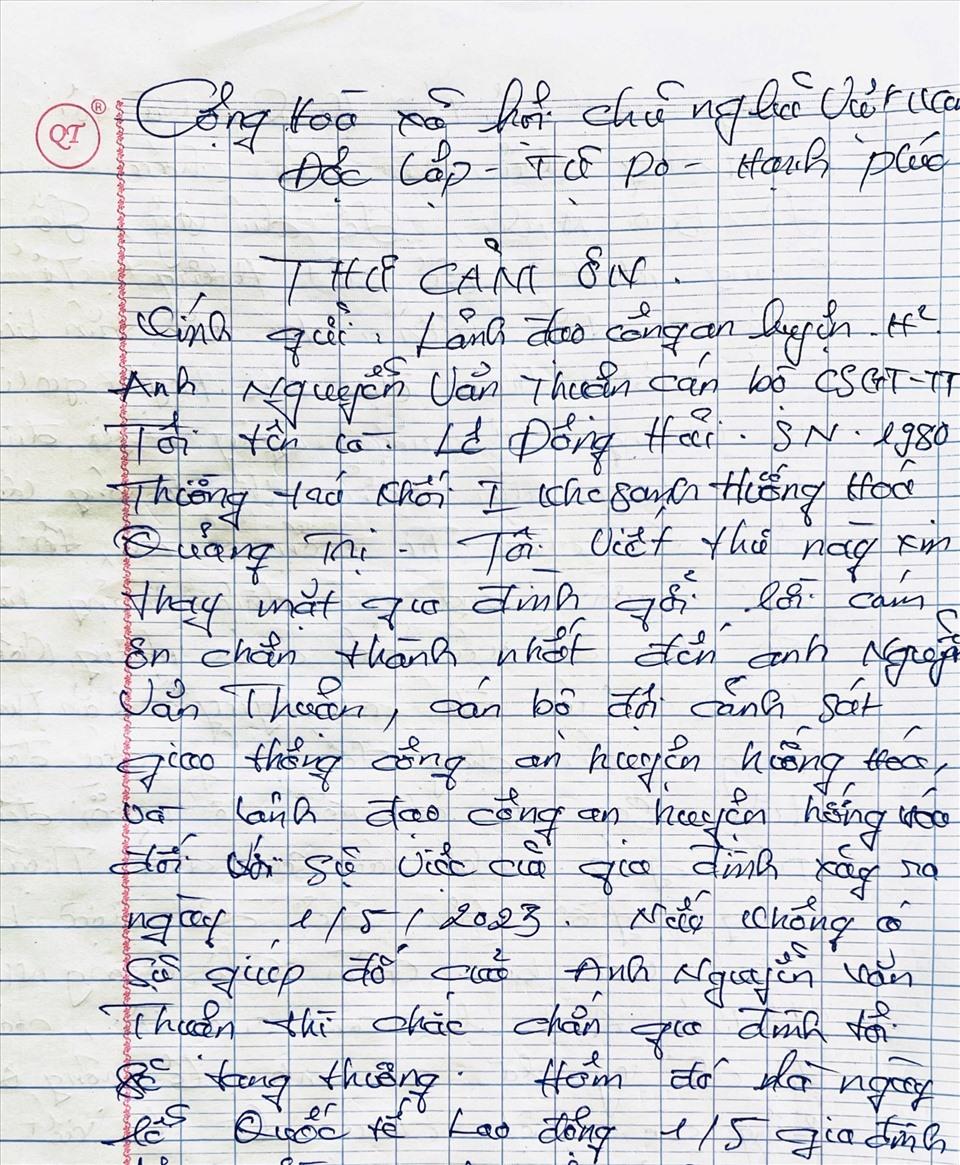 QT ®
Cộng Hoà xã hội chủ nghĩa Việt Na
Độc Lập - Tự Do - Hạnh phúc
THƯ CẢM ƠN.
Kính gửi: Lãnh đạo công an huyện. H²
Anh Nguyễn Văn Thuần cán bộ CSGT-TT
Tôi tên là. Lê Đồng Hải. SN. 1980
Thường trú khối I Khe Sanh Hướng Hoá
Quảng Trị. Tôi viết thư này xin
thay mặt gia đình gởi lời cám
ơn chân thành nhất đến anh Nguyễn
Văn Thuần, cán bộ đội cảnh sát
giao thông công an huyện hướng Hoá,
và lãnh đạo công an huyện hướng Hoá
đối với sự việc của gia đình xảy ra
ngày 1/5/2023. Nếu không có
Sự giúp đỡ của Anh Nguyễn Văn
Thuần thì chắc chắn gia đình tôi
sẽ tang thương. Hôm đó là ngày
lễ Quốc tế Lao động 1/5 gia đình